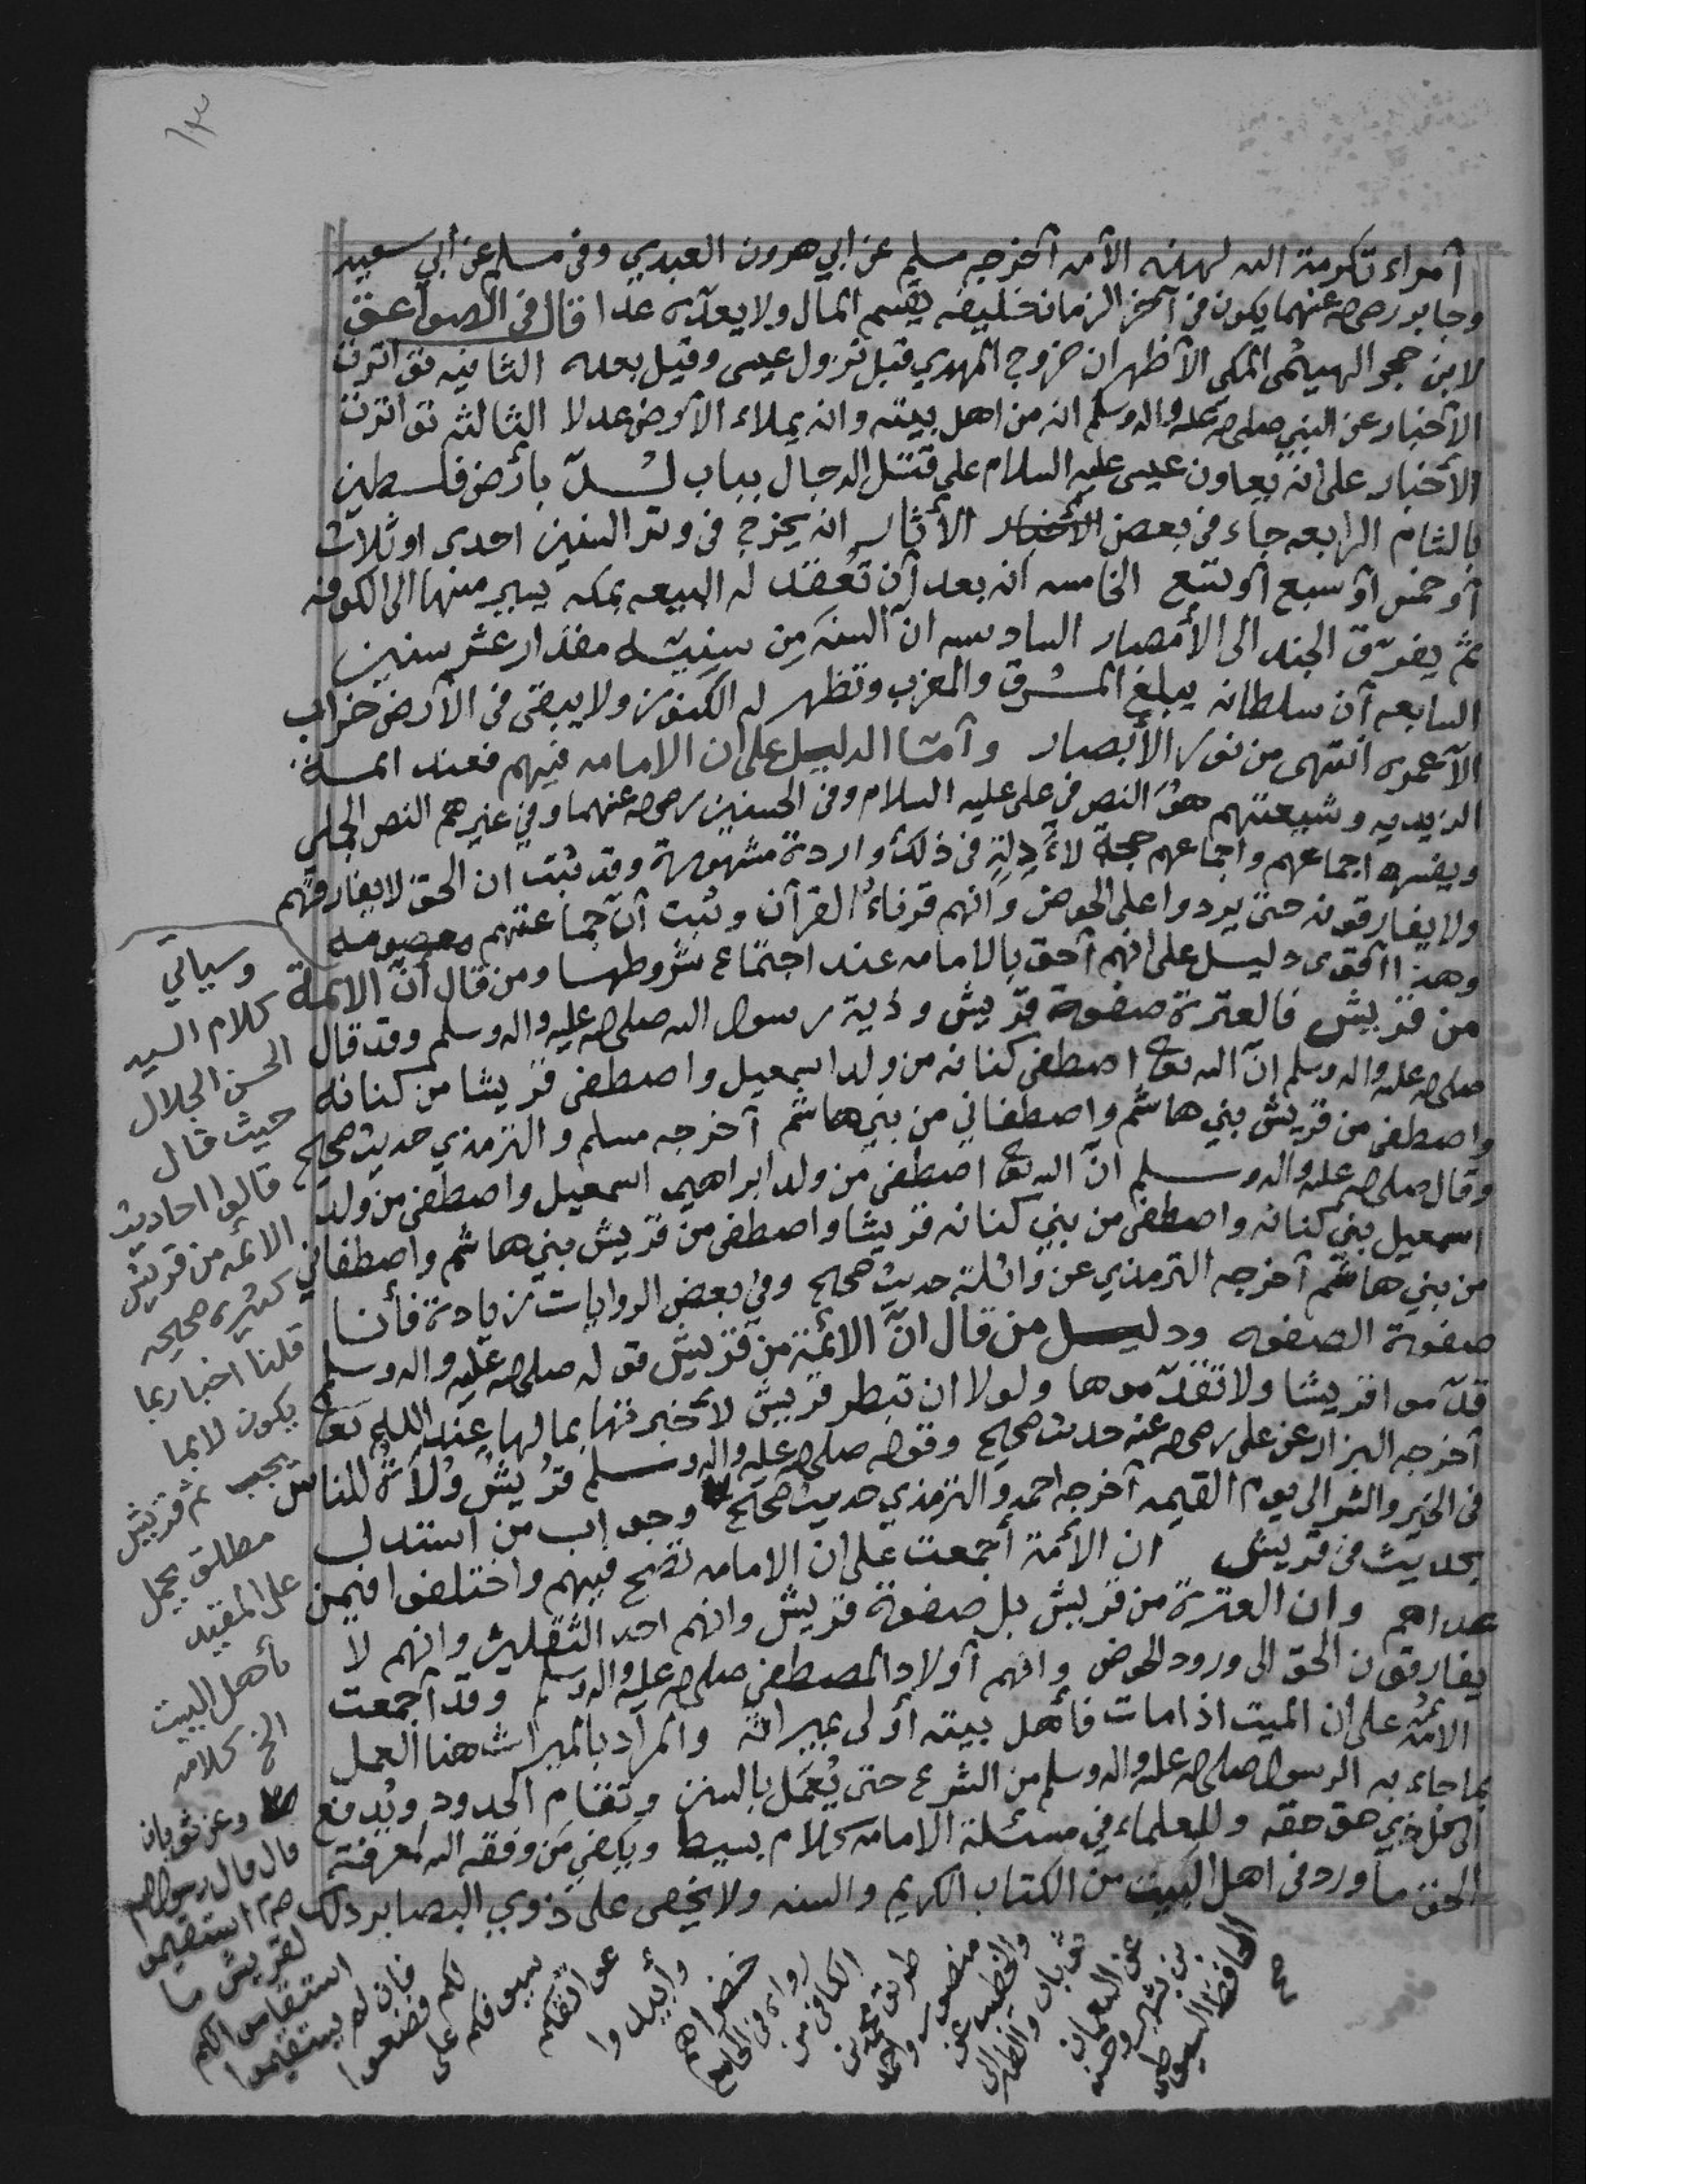 ١٣
أمراء تكرمة الله لهذه الأمه أخرجه مسلم عن ابي هرون العبدي وفي مسلم عن أبي سعيد
وجابر رضي الله عنهما يكون في آخر الزمان خليفه يقسم المال ولا يعده عدا قال في الصواعق
لابن حجر الهيثمي المكي الأظهر ان خروج المهدي قبل نزول عيسى وقيل بعده الثانيه تواترت
الأخبار عن النبي صلى الله عليه واله وسلم انه من اهل بيته وانه يملاء الأرض عدلا الثالثه تواترت
الأخبار على انه يعاون عيسى عليه السلام على قتل الدجال بباب لُدّ بأرض فلسطين
بالشام الرابعه جاء في بعض الأخبار الأثار انه يخرج في وتر السنين احدى او ثلاث
أو خمس أو سبع أو تسع الخامسه انه بعد أن تُعقد له البيعه بمكه يسير منها الى الكوفه
ثم يفرّق الجند الى الأمصار السادسه ان السنه مِن سِنِيّه مقدار عشر سنين
السابعه أن سلطانه يبلغ المشرق والمغرب وتظهر له الكنوز ولا يبقى في الأرض خراب
الا عمره انتهى من نور الأبصار وأمّا الدليل على ان الامامه فيهم فعند ائمة
الزيديه وشيعتهم هوَ النص في علي عليه السلام وفي الحسنين رضي الله عنهما وفي غيرهم النص الجملي
ويفسره اجماعهم واجماعهم حجة لأدِلةٍ في ذلك واردة مشهورة وقد ثبت ان الحق لا يفارقهم
ولا يفارقونه حتى يردوا على الحوض وانهم قرناءُ القرآن وثبت أنّ جماعتهم معصومه
وهذا أقوى دليل على انهم أحق بالامامه عند اجتماع شروطها ومن قال أنّ الائمة
من قريش فالعترة صفوة قريش وذرية رسول الله صلى الله عليه واله وسلم وقد قال
صلى الله عليه واله وسلم انّ الله تع اصطفى كنانه من ولد اسمعيل واصطفى قريشا من كنانه
واصطفى من قريش بني هاشم واصطفاني من بني هاشم أخرجه مسلم والترمذي حديث صحيح
وقال صلى الله عليه واله وسلم انّ الله تع اصطفى من ولد ابراهيم اسمعيل واصطفى من ولد
اسمعيل بني كنانه واصطفى من بني كنانه قريشا واصطفى من قريش بني هاشم واصطفاني
من بني هاشم أخرجه الترمذي عن واثلة حديث صحيح وفي بعض الروايات زيادة فأنا
صفوة الصفوه ودليل من قال انّ الأئمة من قريش قوله صلى الله عليه واله وسلم
قدّموا قريشا ولا تقدّموها ولولا ان تبطر قريش لأخبرتها بما لها عند الله تع
أخرجه البزار عن علي رضي الله عنه حديث صحيح وقوله صلى الله عليه واله وسلم قريشٌ ولاةُ الناس
في الخير والشر الى يوم القيمه أخرجه احمد والترمذي حديث صحيح وجواب من استدل
بحديث في قريش ان الأمة أجمعت على ان الامامه تصح فيهم واختلفوا فيمن
عداهم وان العترة من قريش بل صفوة قريش وانهم احد الثقلين وانهم لا
يفارقون الحق الى ورود الحوض وانهم أولاد المصطفى صلى الله عليه واله وسلم وقد أجمعت
الأمة على ان الميت اذا مات فأهل بيته أولى بميراثه والمراد بالميراث هنا العمل
بما جاء به الرسول صلى الله عليه واله وسلم من الشرع حتى يُعْمَل بالسنن وتقام الحدود ويُدفع
الى كل ذي حق حقه وللعلماء في مسئلة الامامه كلام بسيط ويكفي مَن وفقه الله لمعرفة
الحق ما ورد في اهل البيت من الكتاب الكريم والسنه ولا يخفى على ذوي البصاير ذلك
وسيأتي
كلام السيد
الحسن الجلال
حيث قال
قالوا احاديث
الائمه من قريش
كثيره صحيحه
قلنا اخبار بما
يكون لا بما
يجب ثم قريش
مطلق يحمل
على المقيد
بأهل البيت
الخ كلامه
وعن ثوبان
قال قال رسول الله
صم استقيموا
لقريش ما
استقاموا لكم
فإن لم يستقيموا
لكم فضعوا
سيوفكم على
عواتقكم
وأبيدوا
خضراهم
رواه في الجامع
الكافي من
طريق محمد بن
منصور واحمد
والخطيب عن
ثوبان والطبراني
عن النعمان
بن بشير وحسنه
الحافظ السيوطي
صح